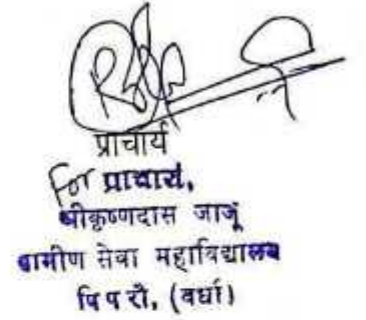 प्राचार्य
For प्राचार्य,
श्रीकृष्णदास जाजू
ग्रामीण सेवा महाविद्यालय
पिपरी, (वर्धा)